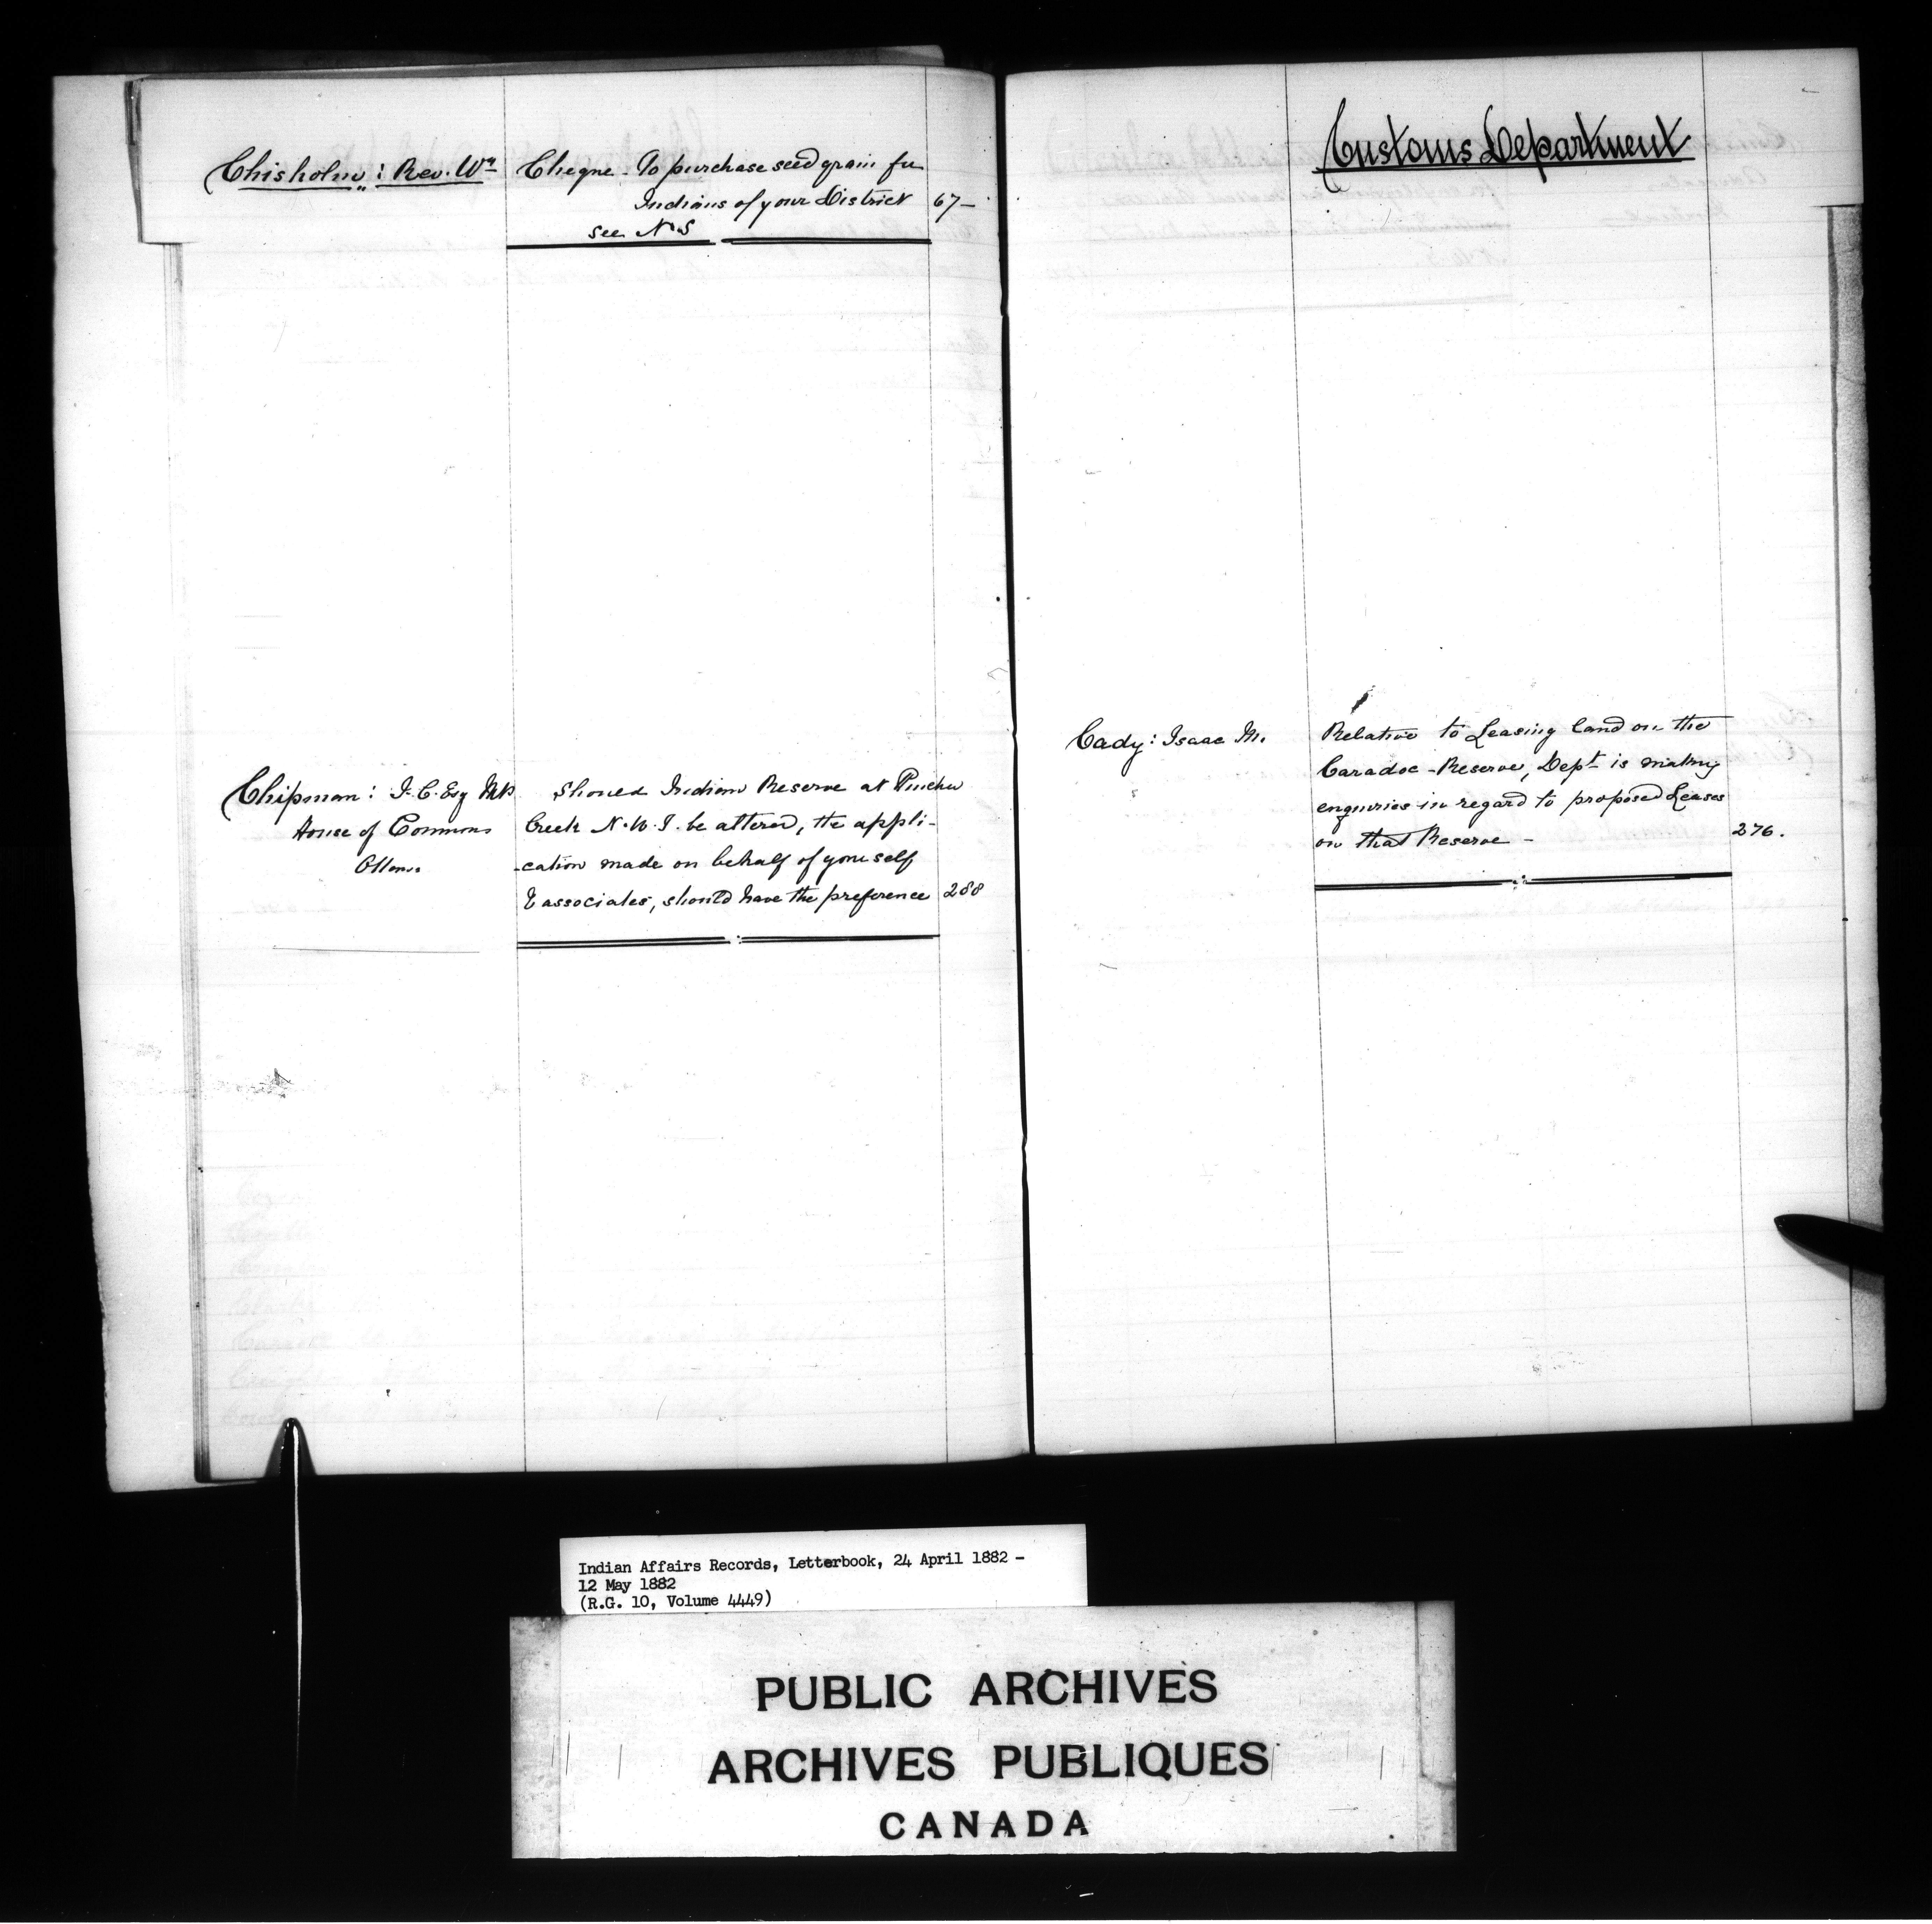 Chisholm: Rev. Wm Cheque - To purchase seed grain for
Indians of your District 67-
see N.S
Chipman: J.C. Esq MP Should Indian Reserve at Pincher
House of Commons Creek N.W.T. be altered, the appli-
Ottawa -cation made on behalf of yourself
& associates, should have the preference 288
Customs Department
Cady: Isaac M. Relative to Leasing land on the
Caradoc - Reserve, Dept is making
enquiries in regard to proposed Leases
on that Reserve - 276.
Indian Affairs Records, Letterbook, 24 April 1882 -
12 May 1882
(R.G. 10, Volume 4449)
PUBLIC ARCHIVES
ARCHIVES PUBLIQUES
CANADA